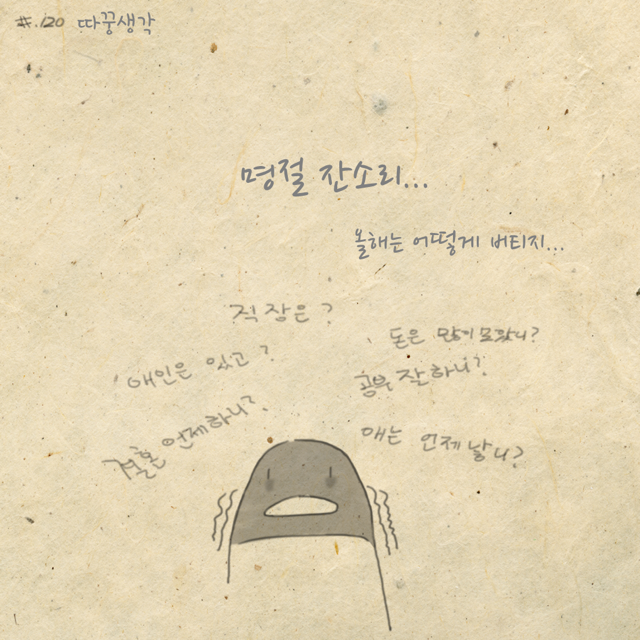 #.120 따꿍생각
명절 잔소리...
올해는 어떻게 버티지...
직장은?
돈은 많이 모았니?
애인은 있고?
공부 잘하니?
결혼 언제하니?
애는 언제 낳니?